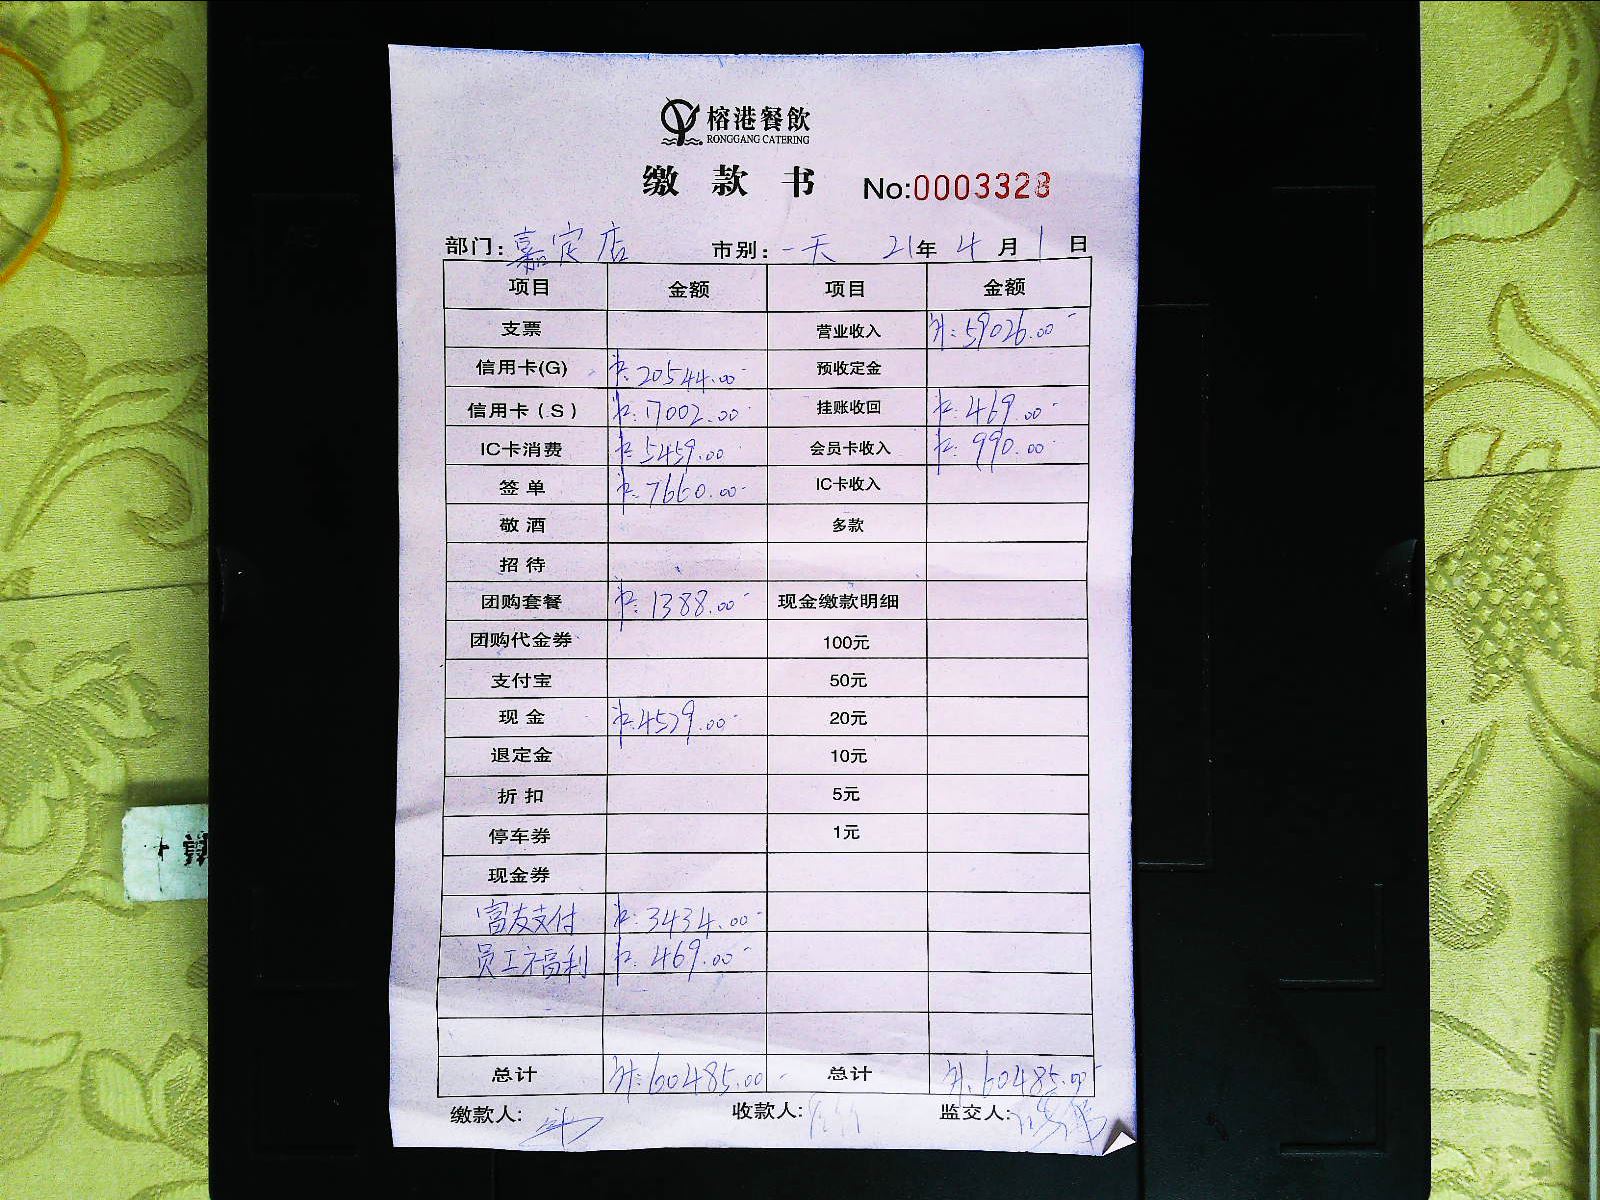 榕港餐飲
RONGGANG CATERING
缴款书 No:0003328
部门: 嘉定店 市别: 一天 21年 4月 1日
项目 金额 项目 金额
支票 营业收入 59026.00
信用卡(G) 20544.00 预收定金
信用卡(S) 17002.00 挂账收回 469.00
IC卡消费 5459.00 会员卡收入 990.00
签单 7660.00 IC卡收入
敬酒 多款
招待
团购套餐 1388.00 现金缴款明细
团购代金券 100元
支付宝 50元
现金 4529.00 20元
退定金 10元
折扣 5元
停车券 1元
现金券
富友支付 3434.00
员工福利 469.00
总计 60485.00 总计 60485.00
缴款人: 收款人: 监交人: